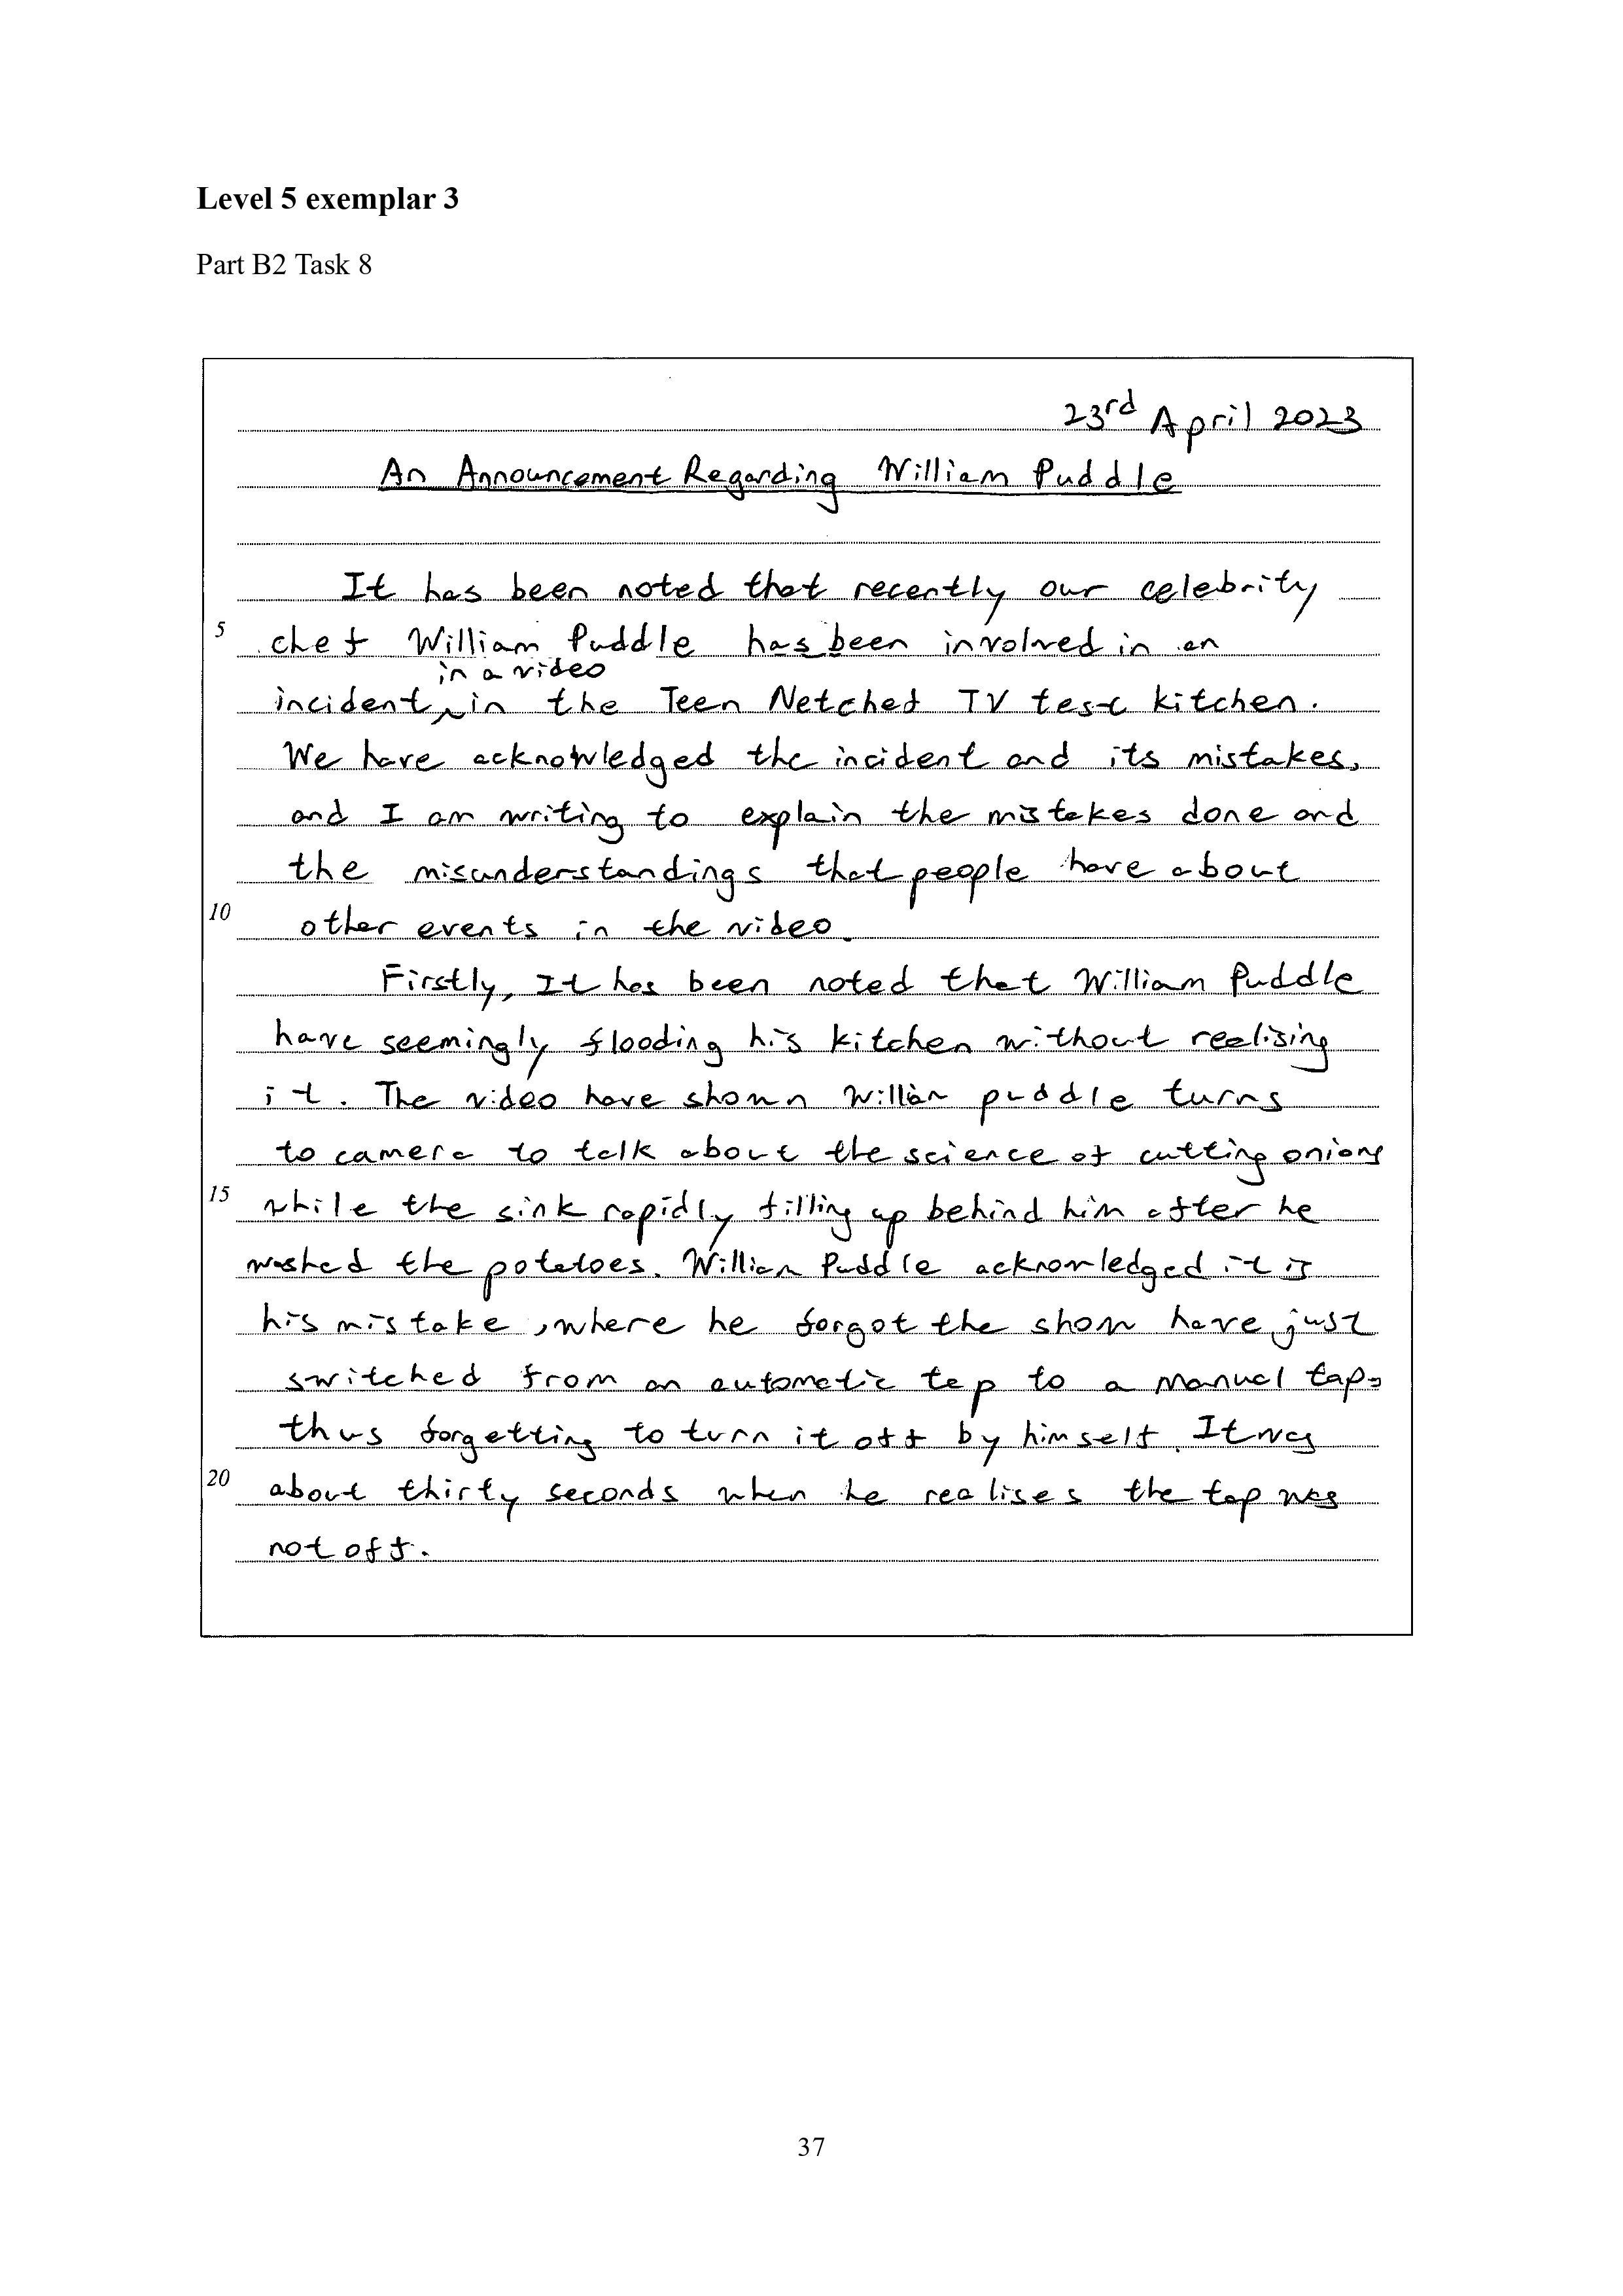 Level 5 exemplar 3
Part B2 Task 8
23rd April 2023
An Announcement Regarding William Puddle
It has been noted that recently our celebrity
5 chef William Puddle has been involved in an
in a video
incident, in the Teen Netchef TV test kitchen.
We have acknowledged the incident and its mistakes,
and I am writing to explain the mistakes done and
the misunderstandings that people have about
10 other events in the video.
Firstly, It has been noted that William Puddle
have seemingly flooding his kitchen without realising
it. The video have shown William puddle turns
to camera to talk about the science of cutting onions
15 while the sink rapidly filling up behind him after he
washed the potatoes. William Puddle acknowledged it is
his mistake, where he forgot the show have just
switched from an automatic tap to a manual tap,
thus forgetting to turn it off by himself. It was
20 about thirty seconds when he realises the tap was
not off.
37